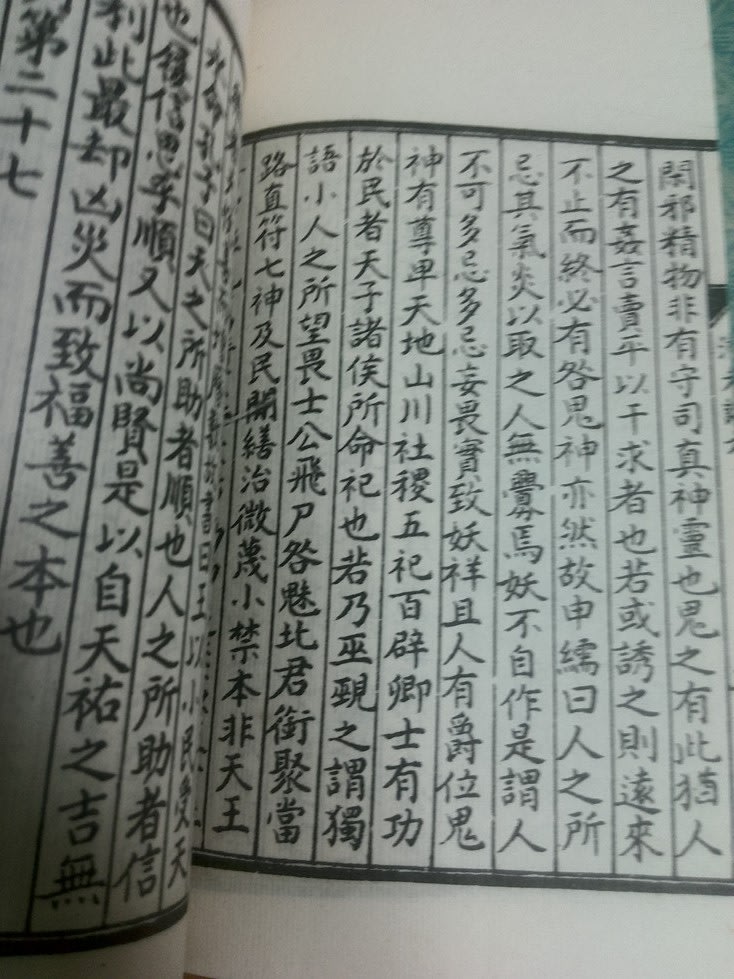 閑邪精物非有守司真神靈也鬼之有此猶人
之有姦言賣平以干求者也若或誘之則遠來
不止而終必有咎鬼神亦然故申繻曰人之所
忌其氣炎以取之人無釁焉妖不自作是謂人
不可多忌多忌妄畏實致妖祥且人有爵位鬼
神有尊卑天地山川社稷五祀百辟卿士有功
於民者天子諸侯所命祀也若乃巫覡之謂獨
語小人之所望畏士公飛尸咎魅北君銜聚當
路直符七神及民間繕治微蔑小禁本非天王
王以小民受天
孔子曰天之所助者順也人之所助者信
也履信思乎順又以尚賢是以自天祐之吉無
不利此最却凶災而致福善之本也
第二十七